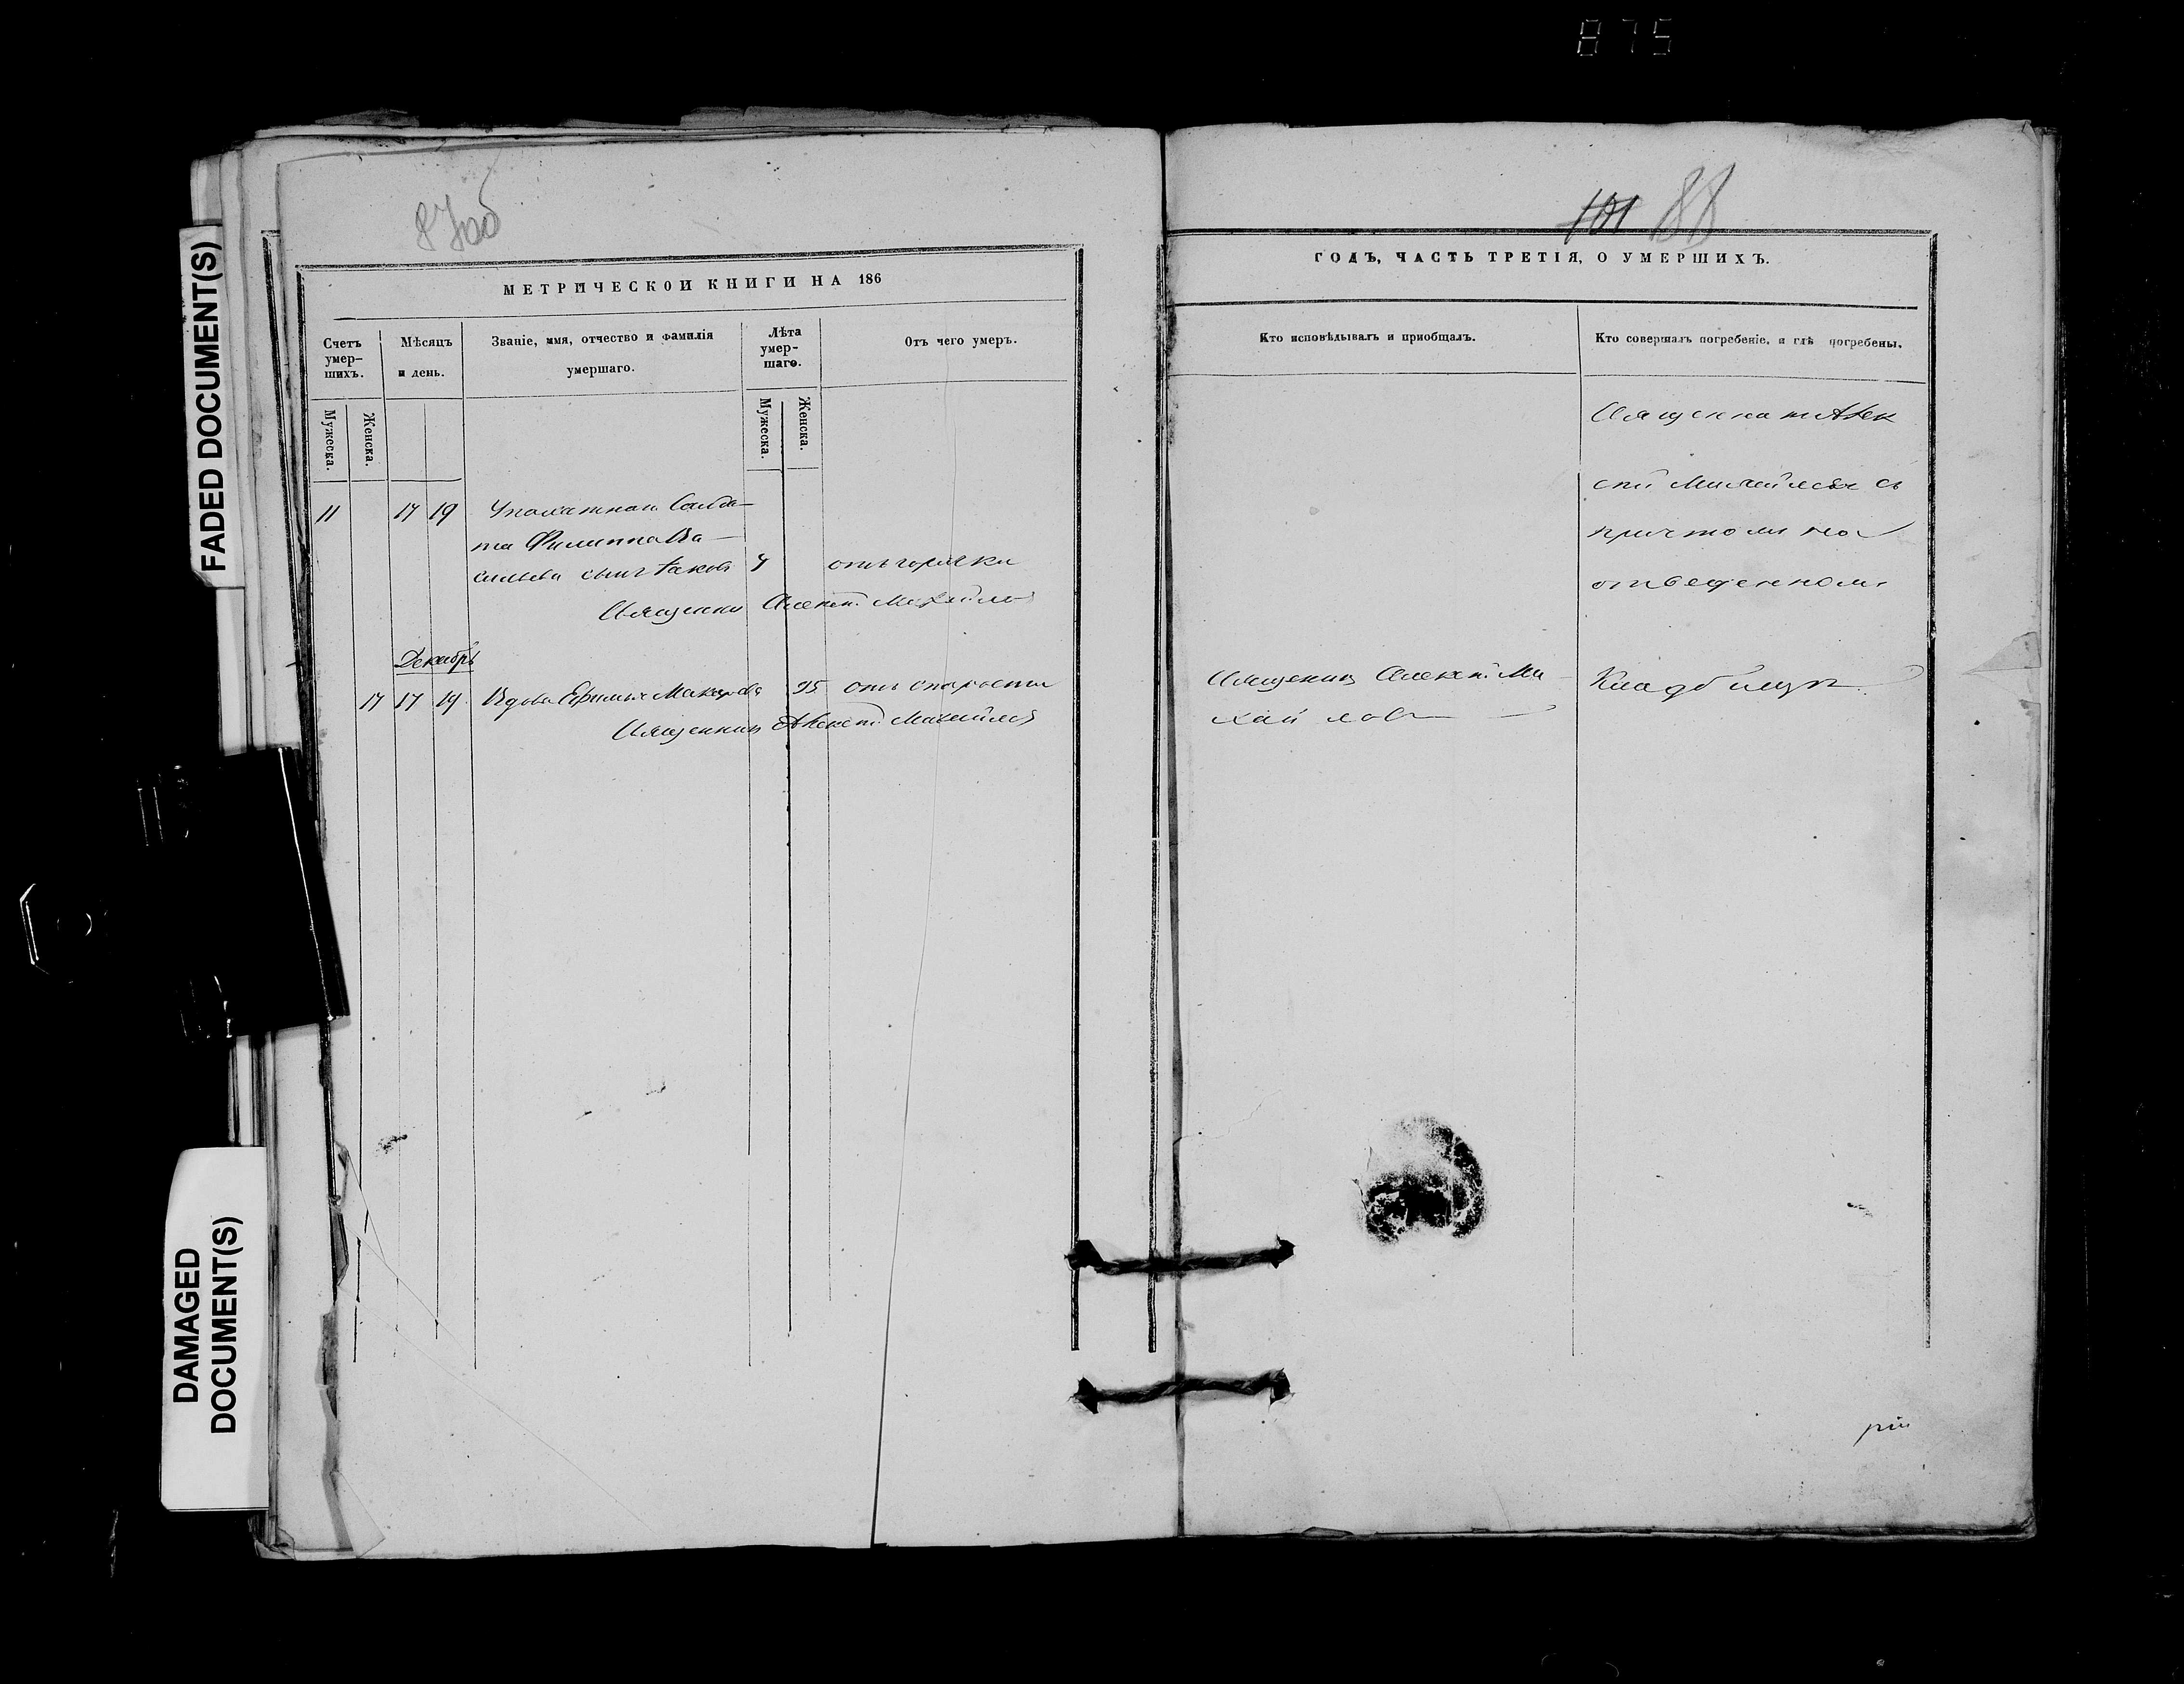 875
FADED DOCUMENT(S)
DAMAGED
DOCUMENT(S)
87об
МЕТРИЧЕСКОЙ КНИГИ НА 186
Счетъ умер-шихъ.
Мѣсяцъ и день.
Званіе, имя, отчество и фамилія умершаго.
Лѣта умер-шаго.
Отъ чего умеръ.
Мужеска.
Женска.
Мужеска.
Женска.
11 17 19 Солда-
та Филиппа Ва-
сильева сынъ Іаковъ 4 отъ горячки
Священникъ Алексѣй Михайловъ
Декабрь
17 17 19 Вдова Ефимья Макарова 95 отъ старости
Священникъ Алексѣй Михайловъ
101 88
ГОДЪ, ЧАСТЬ ТРЕТІЯ, О УМЕРШИХЪ.
Кто исповѣдывалъ и приобщалъ.
Кто совершалъ погребеніе, и гдѣ погребены.
Священникъ Алек
сѣй Михайловъ съ
причтомъ на
отведенномъ
Священникъ Алексѣй Ми
хайловъ
Кладбищѣ
рій